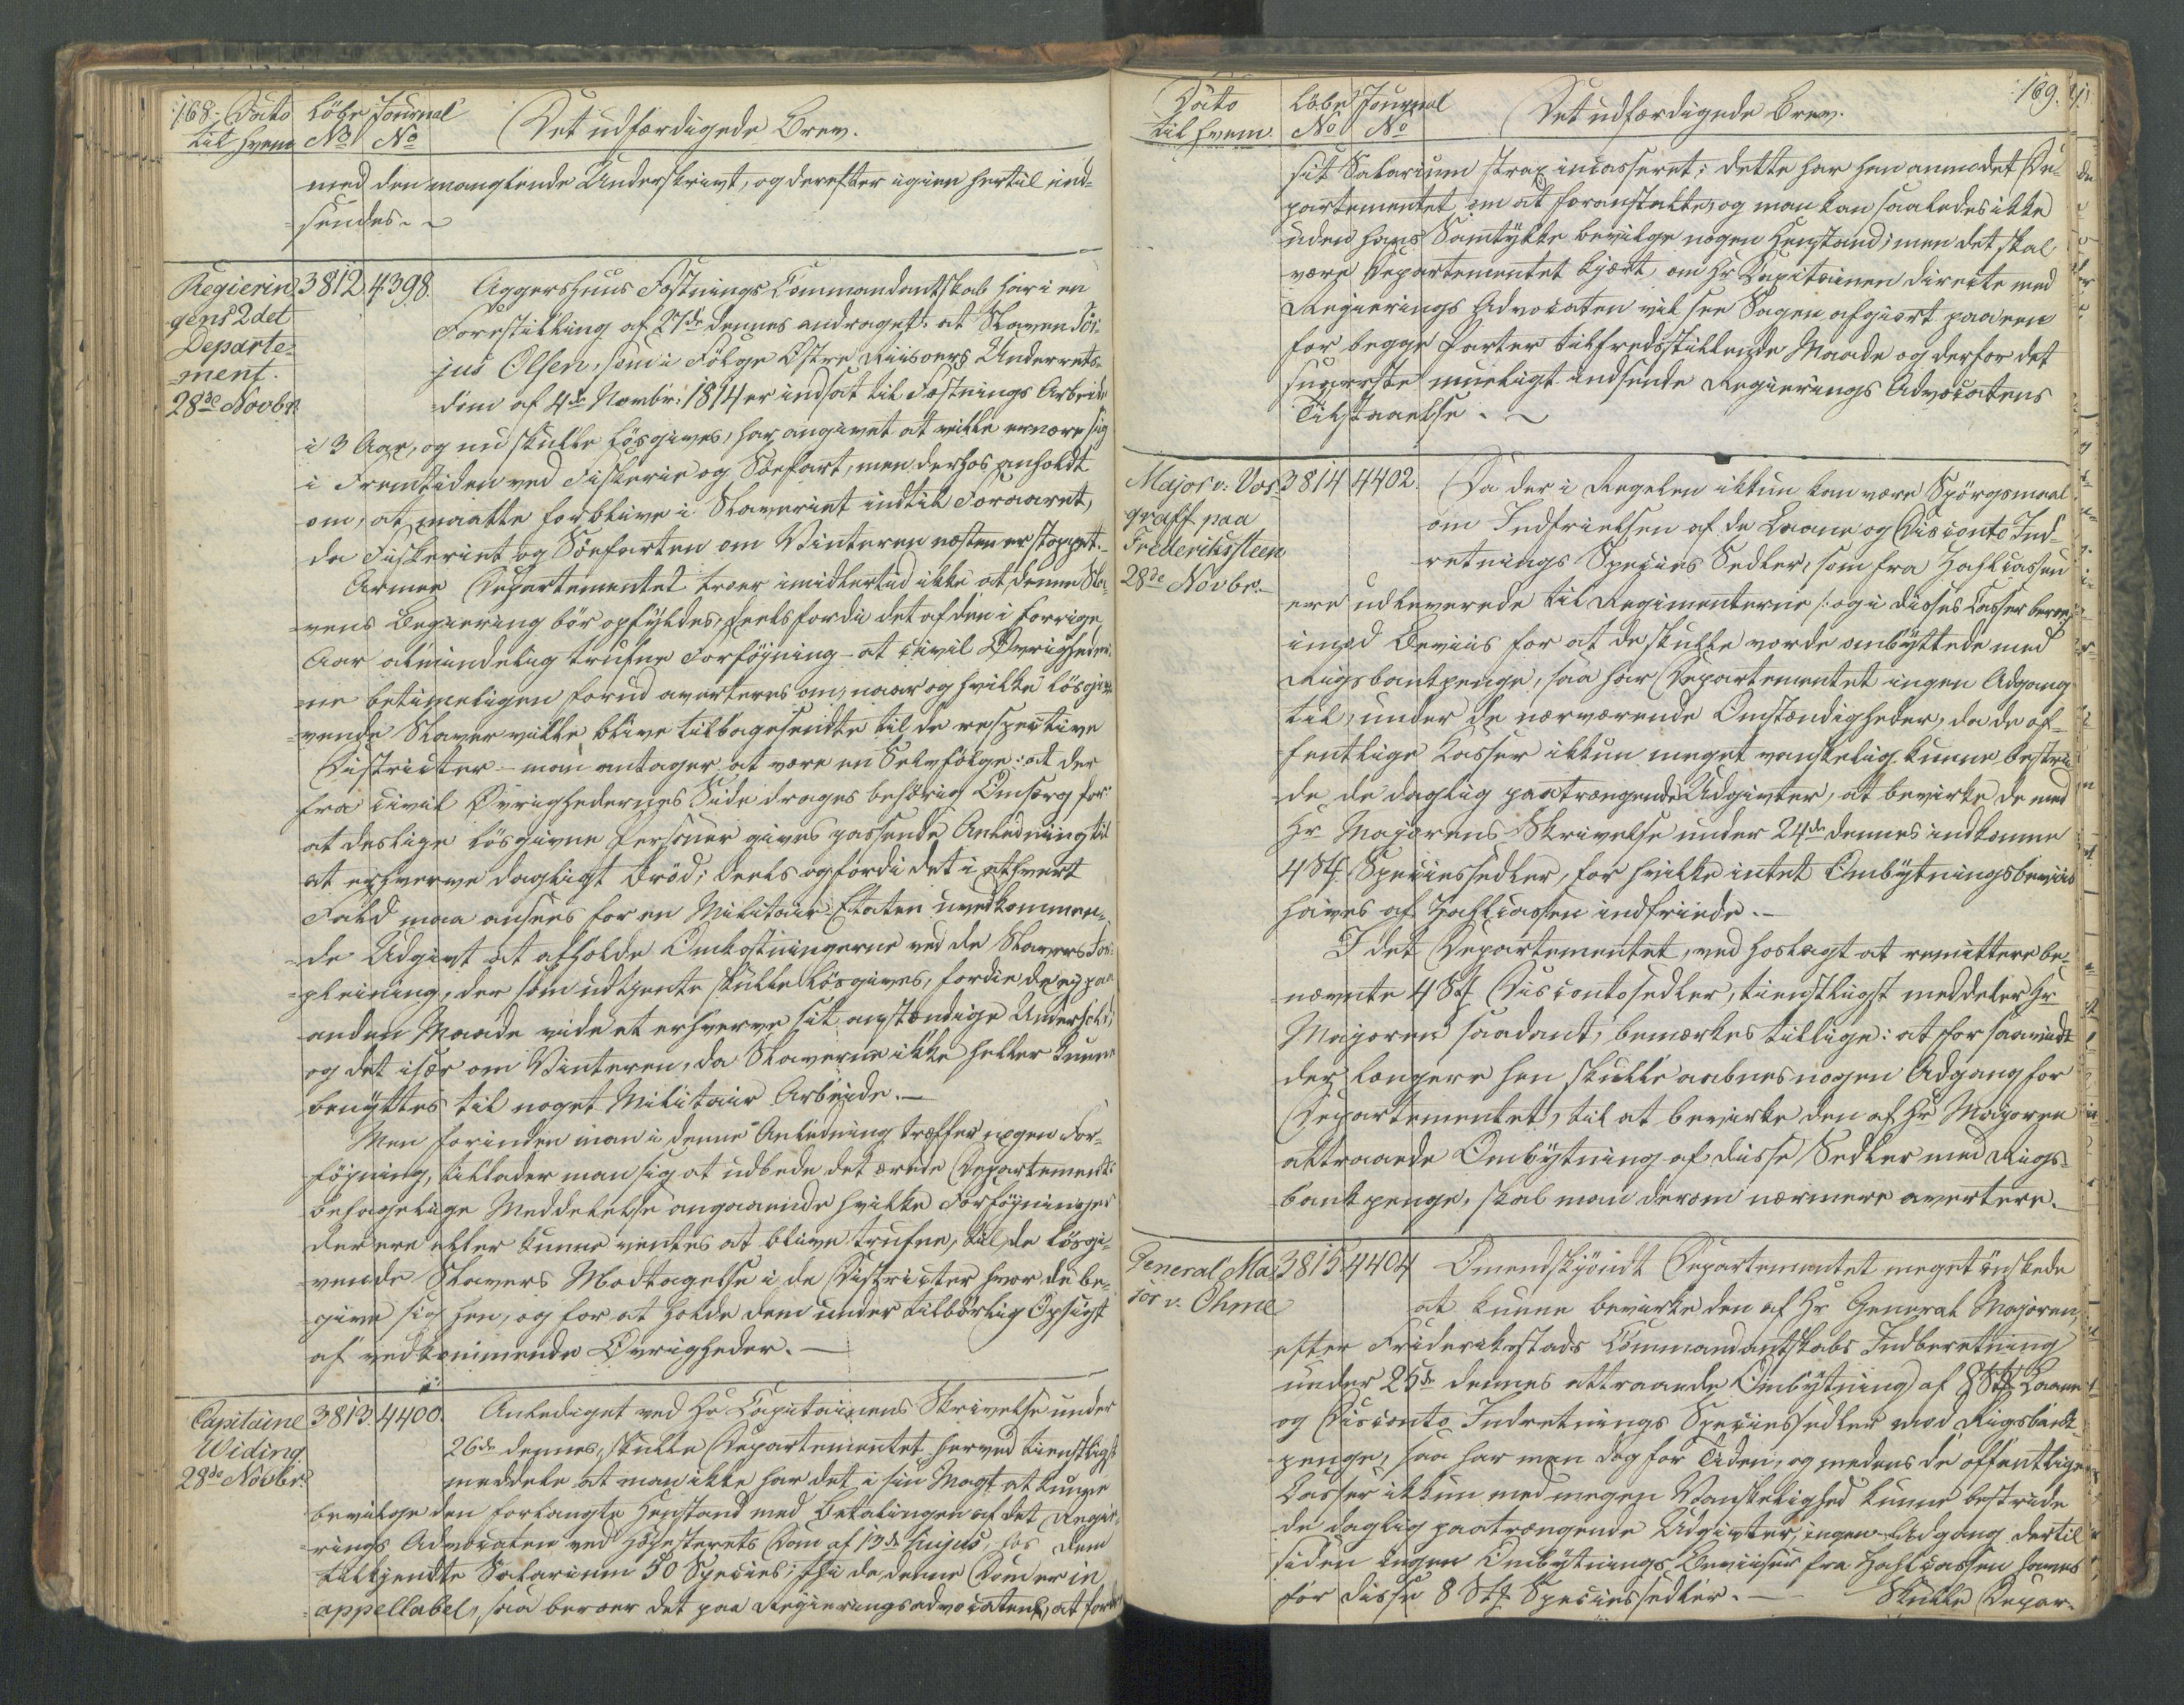 168. Dato Löbe Journal Det udfærdigede Brev.
til hvem No No
med den manglende Underskrivt, og derefter igien hertil ind-
sendes.
Regierin 3812. 4398. Aggershuus Fæstnings Commandantskab har i en
gens 2det Forestilling af 27de dennes andraget: at Slaven Tör-
Departe- jus Olsen, som i Fölge Östre Riisoers Underrets-
ment. dom af 4de Novbr: 1814 er indsat til Fæstnings Arbeide
28de Novbr.
i 3 Aar, og nu skulle lösgives, har angivet at ville ernære sig
i Fremtiden ved Fiskerie og Söefart, men derhos anholdt
om, at maatte forblive i Slaveriet indtil Foraaret,
da Fiskeriet og Söefarten om Vinteren næsten er stoppet.
Armee Departementet troer imidlertid ikke at denne Sla-
vens Begiering bör opfyldes, deels fordi det af den i forrige
Aar almindelig trufne Forföjning - at civil Øvrigheder-
ne betimeligen forud averteres om, naar og hvilke lösgi-
vende Slaver ville blive tilbagesendte til de respective
Districter - man antager at være en Selvfölge: at der
fra civil Øvrighedernes Side drages behörig Omsorg for
at deslige lösgivne Personer gives passende Anledning til
at erhverve dagligt Bröd; deels og fordi det i ethvert
Fald maa ansees for en Militair Etaten uvedkommen-
de Udgivt at afholde Omkostningerne ved de Slavers For-
pleining, der som udtjente skulle lösgives, fordie de ej paa
anden Maade vide at erhverve sit anstændige Underhold,
og det især om Vinteren, da Slaverne ikke heller kunne
benyttes til noget Militair Arbeide.
Men forinden man i denne Anledning træffer nogen For-
föjning, tillader man sig at udbede det ærede Departements
behagelige Meddelelse angaaende hvilke Forföjninger
der ere eller kunne ventes at blive trufne, til de lösgi-
vende Slavers Modtagelse i de Districter hvor de be-
give sig hen, og for at holde dem under tilbörlig Opsigt
af vedkommende Øvrigheder.
Capitaine 3813. 4400. Anlediget ved Hr Capitainens Skrivelse under
Widing 26de dennes, skulle Departementet herved tienstligst
28de Novbr. meddele at man ikke har det i sin Magt at kunne
bevilge den forlangte Henstand med Betalingen af det Regie-
rings Advocaten ved Höiesterets Dom af 13de hujus, hos Dem
tilkjendte Salarium 50 Species; thi da denne Dom er in
appellabel, saa beroer det paa Regieringsadvocaten, at fordre
Dato Löbe Journal Det udfærdigede Brev. 169.
til hvem. No No
sit Salarium strax incasseret; dette har han anmodet De-
partementet om at foranstalte, og man kan saaledes ikke
uden hans Samtykke bevilge nogen Henstand; men det skal
være Departementet kjært, om Hr Capitainen directe med
Regierings Advocaten vil see Sagen afgiort paa een
for begge Parter tilfredsstillende Maade og derfor det
snareste mueligt indsende Regierings Advocatens
Tilstaaelse.
Major v. Vos 3814 4402. Da der i Regelen ikkun kan være Spörgsmaal
graff paa om Indfrielsen af de Laane og Disconto Ind-
Frederikssteen retnings Species Sedler, som fra Zahlcassen
28de Novbr.
ere udleverede til Regimenterne /: og i disses Casser beroe :/
imod Beviis for at de skulle vorde ombyttede med
Rigsbankpenge, saa har Departementet ingen Adgang
til, under de nærværende Omstændigheder, da de of-
fentlige Casser ikkun meget vanskelig kunne bestri-
de de daglig paatrængende Udgivter, at bevirke de med
Hr Majorens Skrivelse under 24de dennes indkomne
4 Stk. Speciessedler, for hvilke intet Ombytningsbeviis
haves af Zahlcassen indfriede.
I det Departementet, ved hoslagt at remittere be-
nævnte 4 Stk Discontosedler, tienstligst meddeler Hr
Majoren saadant, bemærkes tillige: at for saavidt
der længere hen skulle aabnes nogen Adgang for
Departementet, til at bevirke den af Hr Majoren
attraaede Ombytning af disse Sedler med Rigs-
bankpenge, skal man derom nærmere avertere.
General Ma 3815 4404 Omendskjöndt Departementet meget önskede
jor v. Ohme at kunne bevirke den af Hr General Majoren,
efter Frideriksstads Commandantskabs Indberetning
under 25de dennes attraaede Ombytning af 8 Stk Laane
og Disconto Indretnings Speciessedler mod Rigsbank-
penge, saa har man dog for Tiden, og medens de offentlige
Casser ikkun med megen Vanskelighed kunne bestride
de daglig paatrængende Udgivter, ingen Adgang dertil
siden ingen Ombytnings Beviiser fra Zahlcassen haves
for disse 8 Stk. Speciessedler. Skulle Depar-